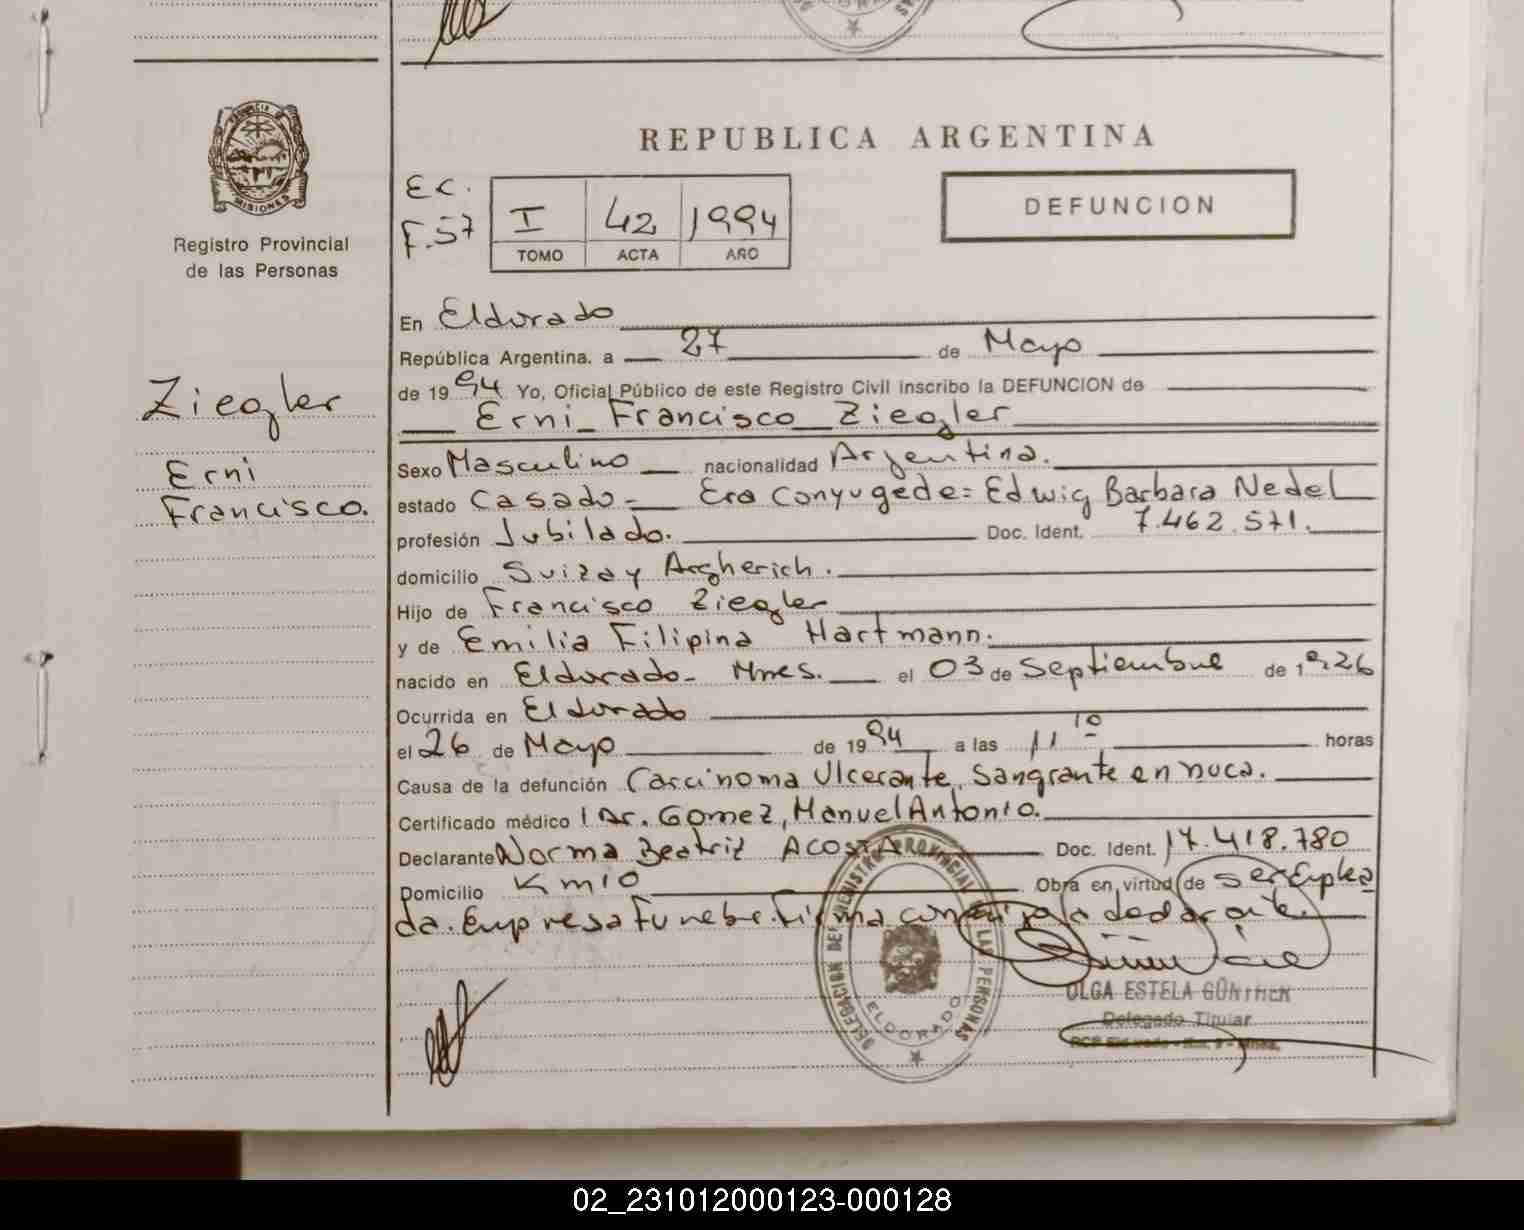 PROVINCIA DE
MISIONES
Registro Provincial
de las Personas
Ziegler
Erni
Francisco.
REPUBLICA ARGENTINA
E.C.
F.57
I 42 1994
TOMO ACTA AÑO
DEFUNCION
En Eldorado
República Argentina. a 27 de Mayo
de 1994 Yo, Oficial Público de este Registro Civil inscribo la DEFUNCION de
Erni Francisco Ziegler
Sexo Masculino nacionalidad Argentina.
estado Casado- Era Conyugede= Edwig Barbara Nedel
profesión Jubilado. Doc. Ident. 7.462.571.
domicilio Suiza y Argherich.
Hijo de Francisco Ziegler
y de Emilia Filipina Hartmann.
nacido en Eldorado- Mnes. el 03 de Septiembre de 1926
Ocurrida en Eldorado
el 26 de Mayo de 1994 a las 11 10 horas
Causa de la defunción Carcinoma Ulcerante, Sangrante en nuca.
Certificado médico Dr. Gomez, Manuel Antonio.
Declarante Norma Beatriz ACOSTA Doc. Ident. 17.418.780
Domicilio Km10 Obra en virtud de ser Emplea
da. Empresa Funebre. Firma conmigo la declarante.
DELEGACION DEL REGISTRO PROVINCIAL DE LAS PERSONAS
ELDORADO
OLGA ESTELA GÜNTHER
Delegado Titular
02_231012000123-000128